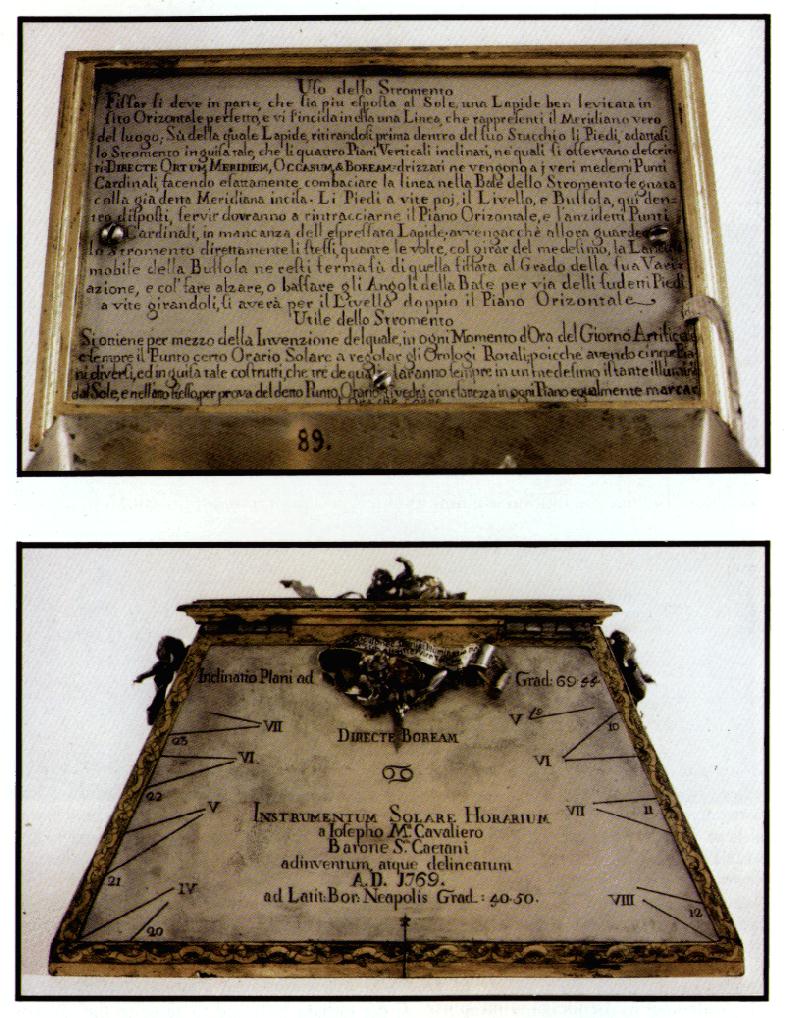 Uso dello Stromento
Fissar si deve in parte, che sia piu esposta al Sole, una Lapide ben levigata in
sito Orizontale perfetto, e vi s'incida in essa una Linea, che rappresenti il Meridiano vero
del luogo; Sù della quale Lapide, ritirandosi prima dentro del suo Stucchio li Piedi, adattasi
lo Stromento in guisa tale, che li quattro Piani Verticali inclinati, ne' quali si osservano descrit-
ti DIRECTE ORTUM, MERIDIEM, OCCASUM, & BOREAM drizzati ne vengono a j veri medemi Punti
Cardinali, facendo esattamente combaciare la linea nella Base dello Stromento segnata
colla già detta Meridiana incisa. Li Piedi a vite poj, il Livello, e Bussola, qui den-
tro disposti, servir dovranno a rintracciarne il Piano Orizontale, e l'anzidetti Punti
Cardinali, in mancanza dell'espressata Lapide, avvengacchè allora guarde
lo Stromento direttamente li stessi, quante le volte, col girar del medesimo, la Lan
mobile della Bussola ne resti ferma sù di quella fissata al Grado della sua Vari-
azione, e col' fare alzare, o bassare gli Angoli della Base per via delli sudetti Piedi
a vite girandoli, si averà per il Livello doppio il Piano Orizontale
Utile dello Stromento
Si ottiene per mezzo della Invenzione del quale, in ogni Momento d'Ora del Giorno Artific
e sempre il Punto certo Orario Solare a regolar gli Orologi Rotali; poicchè avendo cinque Pia-
ni diversi, ed in guisa tale costrutti, che tre de quali saranno sempre in un medesimo istante illumin
dal Sole, e nell'atto stesso, per prova del detto Punto Orario, si vedrà con esattezza in ogni Piano egualmente marcar
l'Ora che corre
89.
Inclinatio Plani ad Grad: 69·44
VII V 10
23 DIRECTE BOREAM 10
VI. VI
22 ♋
V INSTRUMENTUM SOLARE HORARIUM VII 11
a Iosepho Mª. Cavaliero
Barone S. Caetani
adinventum, atque delineatum
21 A.D. 1769.
IV ad Latit: Bor: Neapolis Grad: 40·50. VIII
20 12